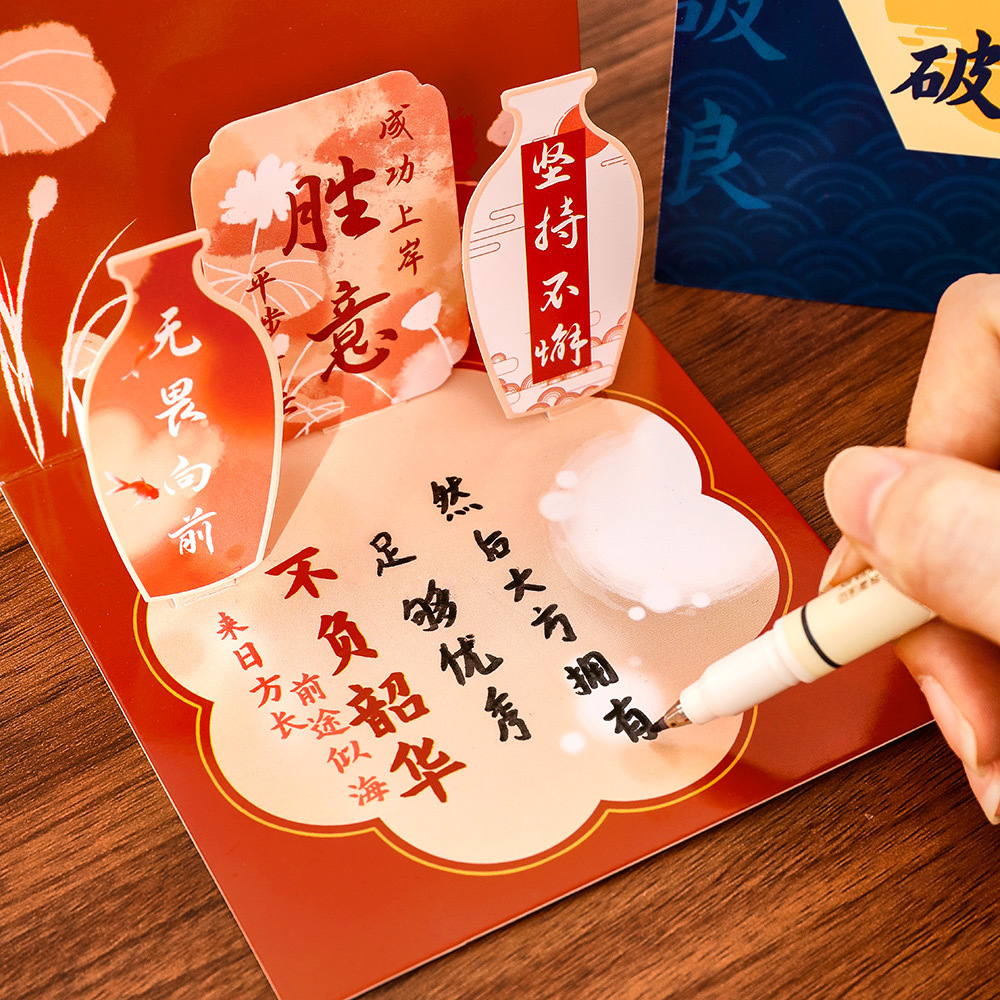 成功上岸
胜意
平步
无畏向前
坚持不懈
来日方长
前途似海
不负韶华
足够优秀
然后大方拥有
破
良
破